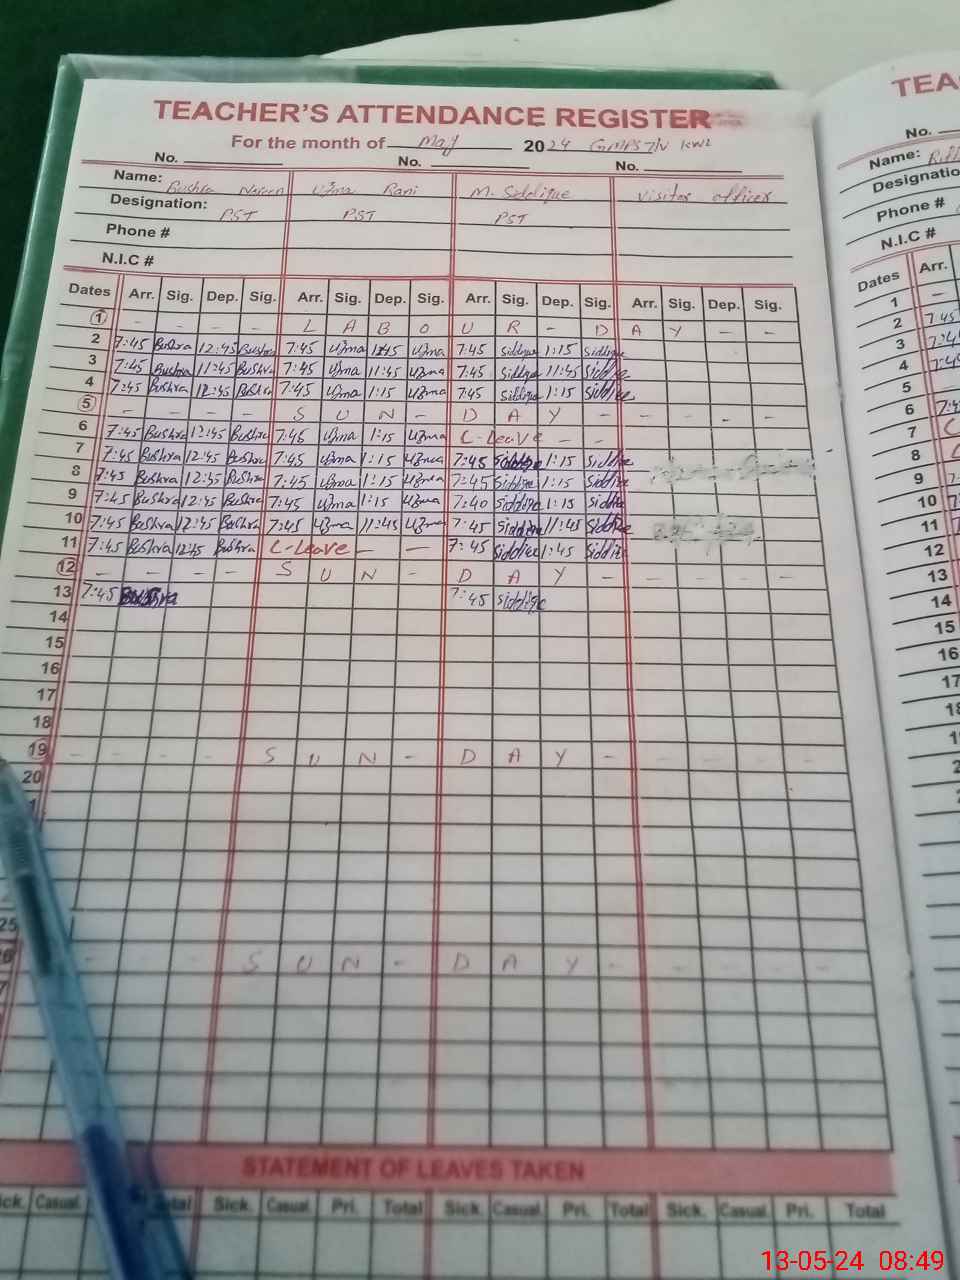 TEACHER'S ATTENDANCE REGISTER
For the month of May 2024 GMPS 7/N KWL
No. No. No.
Name: Bushra Naseen Uzma Rani M. Siddique visitor officer
Designation: PST PST PST
Phone #
N.I.C #
Dates Arr. Sig. Dep. Sig. Arr. Sig. Dep. Sig. Arr. Sig. Dep. Sig. Arr. Sig. Dep. Sig.
1 - - - - L A B O U R - D A Y - -
2 7:45 Bushra 12:45 Bushra 7:45 Uzma 1:15 Uzma 7:45 Siddique 1:15 Siddique
3 7:45 Bushra 11:45 Bushra 7:45 Uzma 11:45 Uzma 7:45 Siddique 11:45 Siddique
4 7:45 Bushra 12:45 Bushra 7:45 Uzma 1:15 Uzma 7:45 Siddique 1:15 Siddique
5 - - - - S U N - D A Y - - - - -
6 7:45 Bushra 12:45 Bushra 7:45 Uzma 1:15 Uzma C-Leave - -
7 7:45 Bushra 12:45 Bushra 7:45 Uzma 1:15 Uzma 7:45 Siddique 1:15 Siddique
8 7:45 Bushra 12:45 Bushra 7:45 Uzma 1:15 Uzma 7:45 Siddique 1:15 Siddique
9 7:45 Bushra 12:45 Bushra 7:45 Uzma 1:15 Uzma 7:40 Siddique 1:15 Siddique
10 7:45 Bushra 12:45 Bushra 7:45 Uzma 11:45 Uzma 7:45 Siddique 11:45 Siddique
11 7:45 Bushra 12:45 Bushra C-Leave - - 7:45 Siddique 1:45 Siddique
12 - - - - S U N - D A Y - - - - -
13 7:45 Bushra 7:45 Siddique
14
15
16
17
18
19 - - - - S U N - D A Y - - - - -
20
25
S U N - D A Y - - - - -
STATEMENT OF LEAVES TAKEN
Casual. Total Sick. Casual. Pri. Total Sick. Casual. Pri. Total Sick. Casual. Pri. Total
TEA
No.
Name:
Designatio
Phone #
N.I.C #
Dates Arr.
1 -
2 7:45
3
4
5
6
7 C
8
9
10
11
12
13
14
15
16
17
13-05-24 08:49